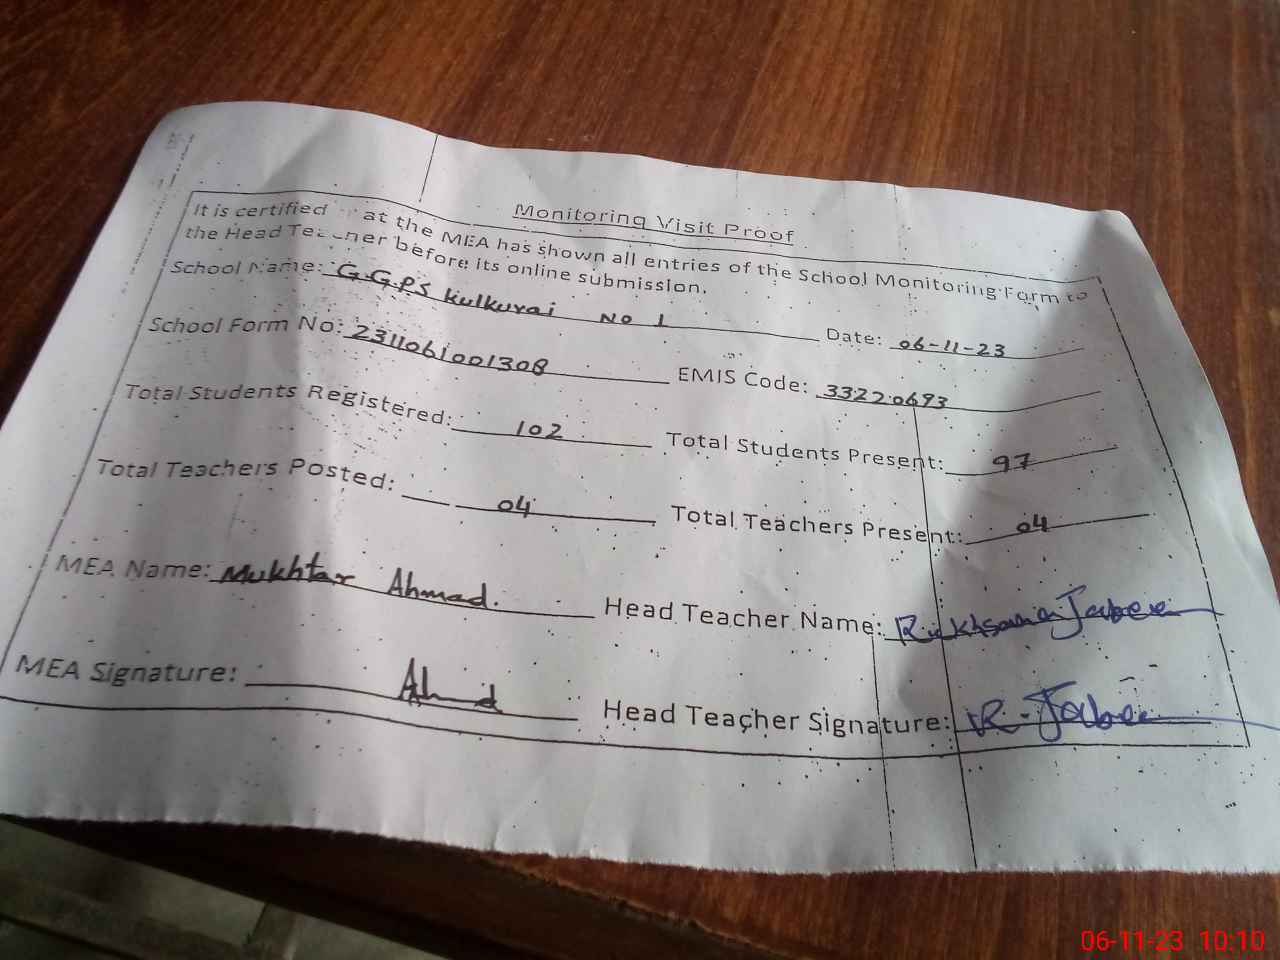 Monitoring Visit Proof
It is certified at the MEA has shown all entries of the School Monitoring Form to
the Head Teacher before its online submission.
School Name: G.G.P.S Kulkurai No 1 Date: 06-11-23
School Form No: 2311061001308 EMIS Code: 33220693
Total Students Registered: 102 Total Students Present: 97
Total Teachers Posted: 04 Total Teachers Present: 04
MEA Name: Mukhtar Ahmad. Head Teacher Name: Rukhsana Jabeen
MEA Signature: Ahmd Head Teacher Signature: R. Jabeen
06-11-23 10:10